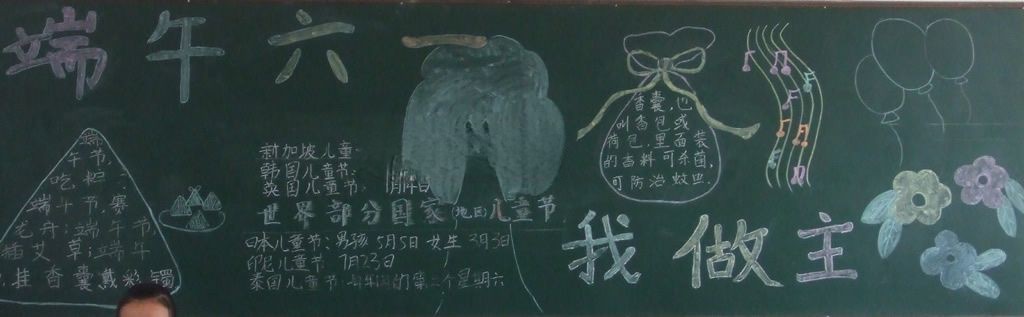 端午六一
端
午节,
吃粽
端午节,赛
龙舟;端午节
插艾草;端午
挂香囊戴彩镯
新加坡儿童
韩国儿童节:
英国儿童节: 月14日
世界部分国家(地区)儿童节
日本儿童节:男孩5月5日 女生3月3日
印尼儿童节 7月23日
泰国儿童节:每年 的第二个星期六
香囊,也
叫香包或
荷包,里面装
的香料可杀菌,
可防治蚊虫.
我做主